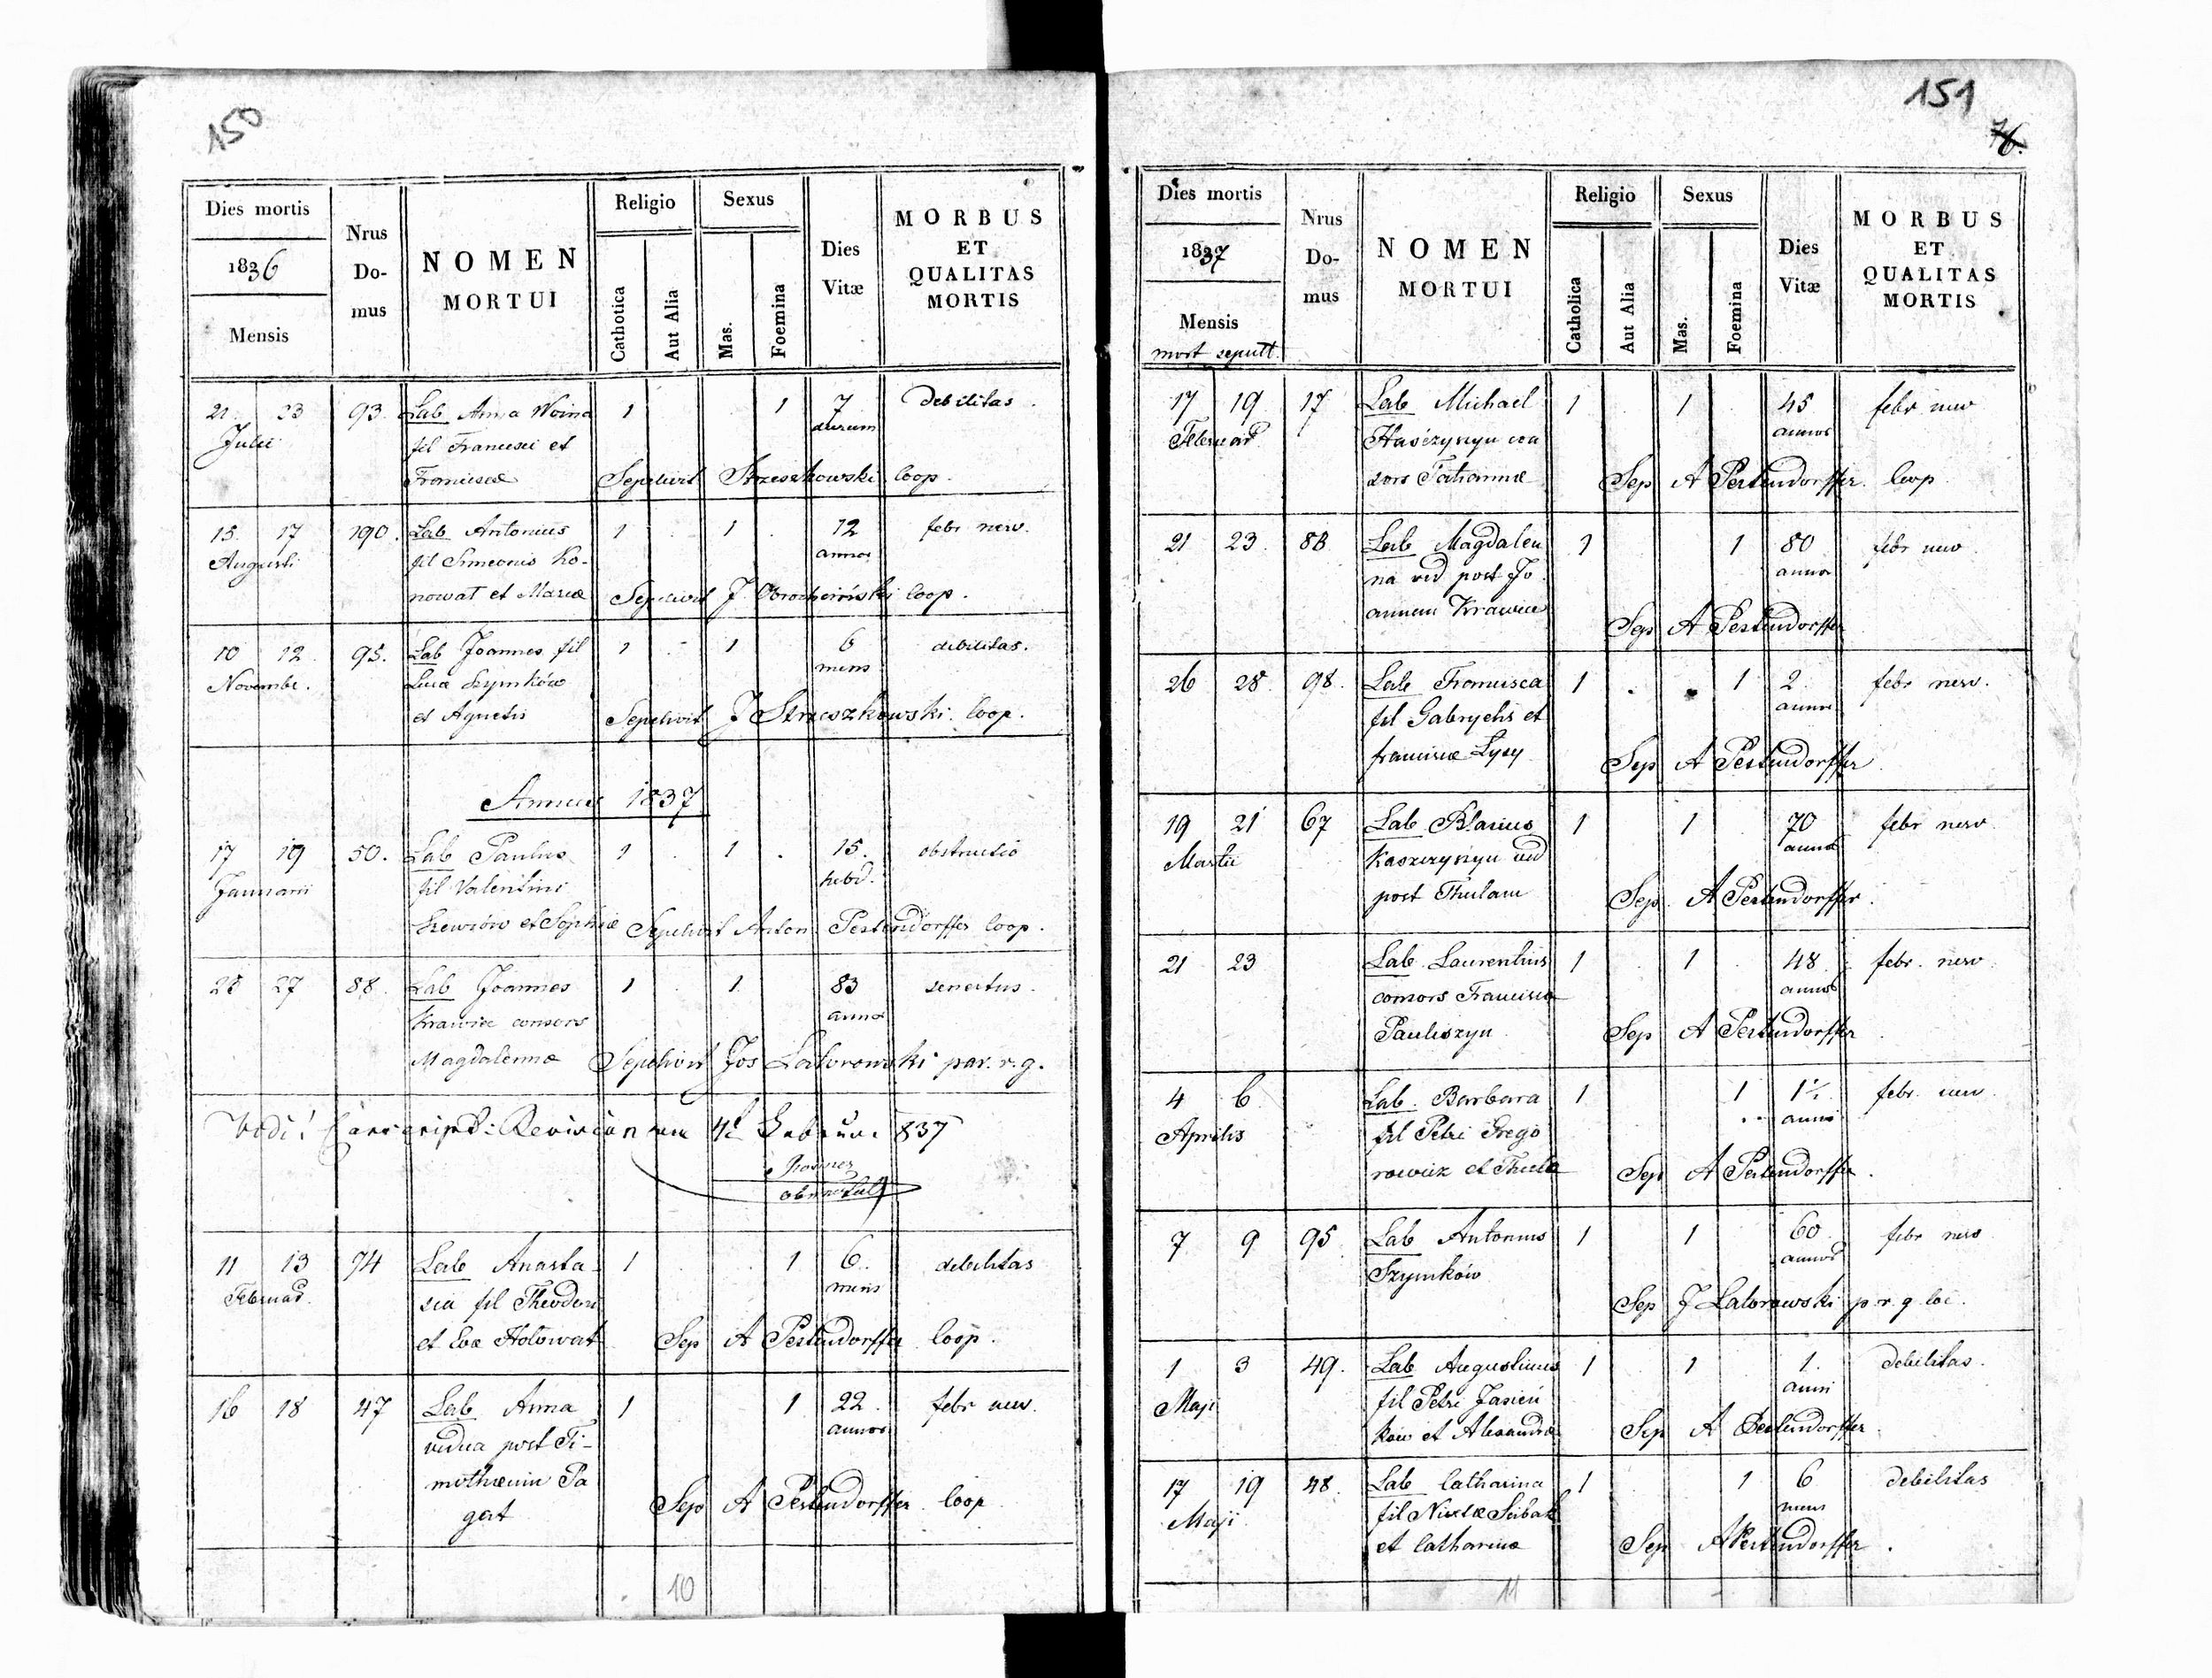 150
Dies mortis
1836
Mensis
Nrus Do- mus
NOMEN MORTUI
Religio
Catholica
Aut Alia
Sexus
Mas.
Foemina
Dies Vitæ
MORBUS ET QUALITAS MORTIS
21. 23 93. Lab Anna 1 1 7 debilitas.
Julii fil Francisci et dierum
Franciscæ Sepelivit Strzeszkowski loop.
15. 17 190. Lab Antonius 1 1 12 febr nerv.
Augusti fil Simeonis Ho- annor
nowat et Mariæ Sepelivit J. loop.
10 12. 95. Lab Joannes fil 1 1 6 debilitas.
Novembr. Lucæ Szymków mens
et Agnetis Sepelivit J Strzeszkowski. loop.
Annus 1837
17 19 50. Lab Paulus 1 1 15. obstructio
Januarii fil Valentini hebd.
et Sophiæ Sepelivit Anton Pestendorffer loop.
25 27 88. Lab Joannes 1 1 83 senectus.
Krawiec consors annor
Magdalennæ Sepelivit Jos Latorowski par. r. g.
Vidi! 837
11 13 74 Lab Anasta- 1 1 6. debilitas
Februar. sia fil Theodori mens
et Evæ Hotowat Sep A Pestendorffer loop.
16 18 47 Lab Anna 1 1 22. febr nerv.
vidua post Ti- annor
mothæum Pa
gat Sep A Pestendorffer loop
10
151
76.
Dies mortis
1837
Mensis
mort sepult.
Nrus Do- mus
NOMEN MORTUI
Religio
Catholica
Aut Alia
Sexus
Mas.
Foemina
Dies Vitæ
MORBUS ET QUALITAS MORTIS
17 19 17 Lab Michael 1 1 45 febr nerv
Februar con annor
sors Tatiannæ Sep A Pestendorffer. loop
21 23. 88 Lab Magdalen 1 1 80 febr nerv.
na vid post Jo annor
annem Krawiec
Sep A Pestendorffer
26 28. 98. Lab Francisca 1 1 2. febr nerv.
fil Gabryelis et annor
francisæ Lysy Sep A Pestendorffer.
19 21 67 Lab Blasius 1 1 70 febr nerv.
Martii Kaszczyszyn vid annor
post Theclam Sep. A Pestendorffer.
21 23 Lab. Laurentius 1 1 48. febr. nerv.
consors Francisca annor
Pauliszyn Sep A Pestendorffer.
4 6 Lab. Barbara 1 1 1½ febr. nerv.
Aprilis fil Petri Grego anno
rowicz et Thecla Sep A Pestendorffer.
7 9 95. Lab Antonius 1 1 60 febr nerv
Szymków annor
Sep J Latorowski p. r. g. loi.
1 3 49. Lab Augustinus 1 1 1. debilitas.
Maji fil Petri Jasień anni
kow et Alexandra Sep A Pestendorffer.
17 19 48. Lab Catharina 1 1 6 debilitas
Maji fil Nicolæ Scibak mens
et Catharinæ Sep A Pestendorffer.
11